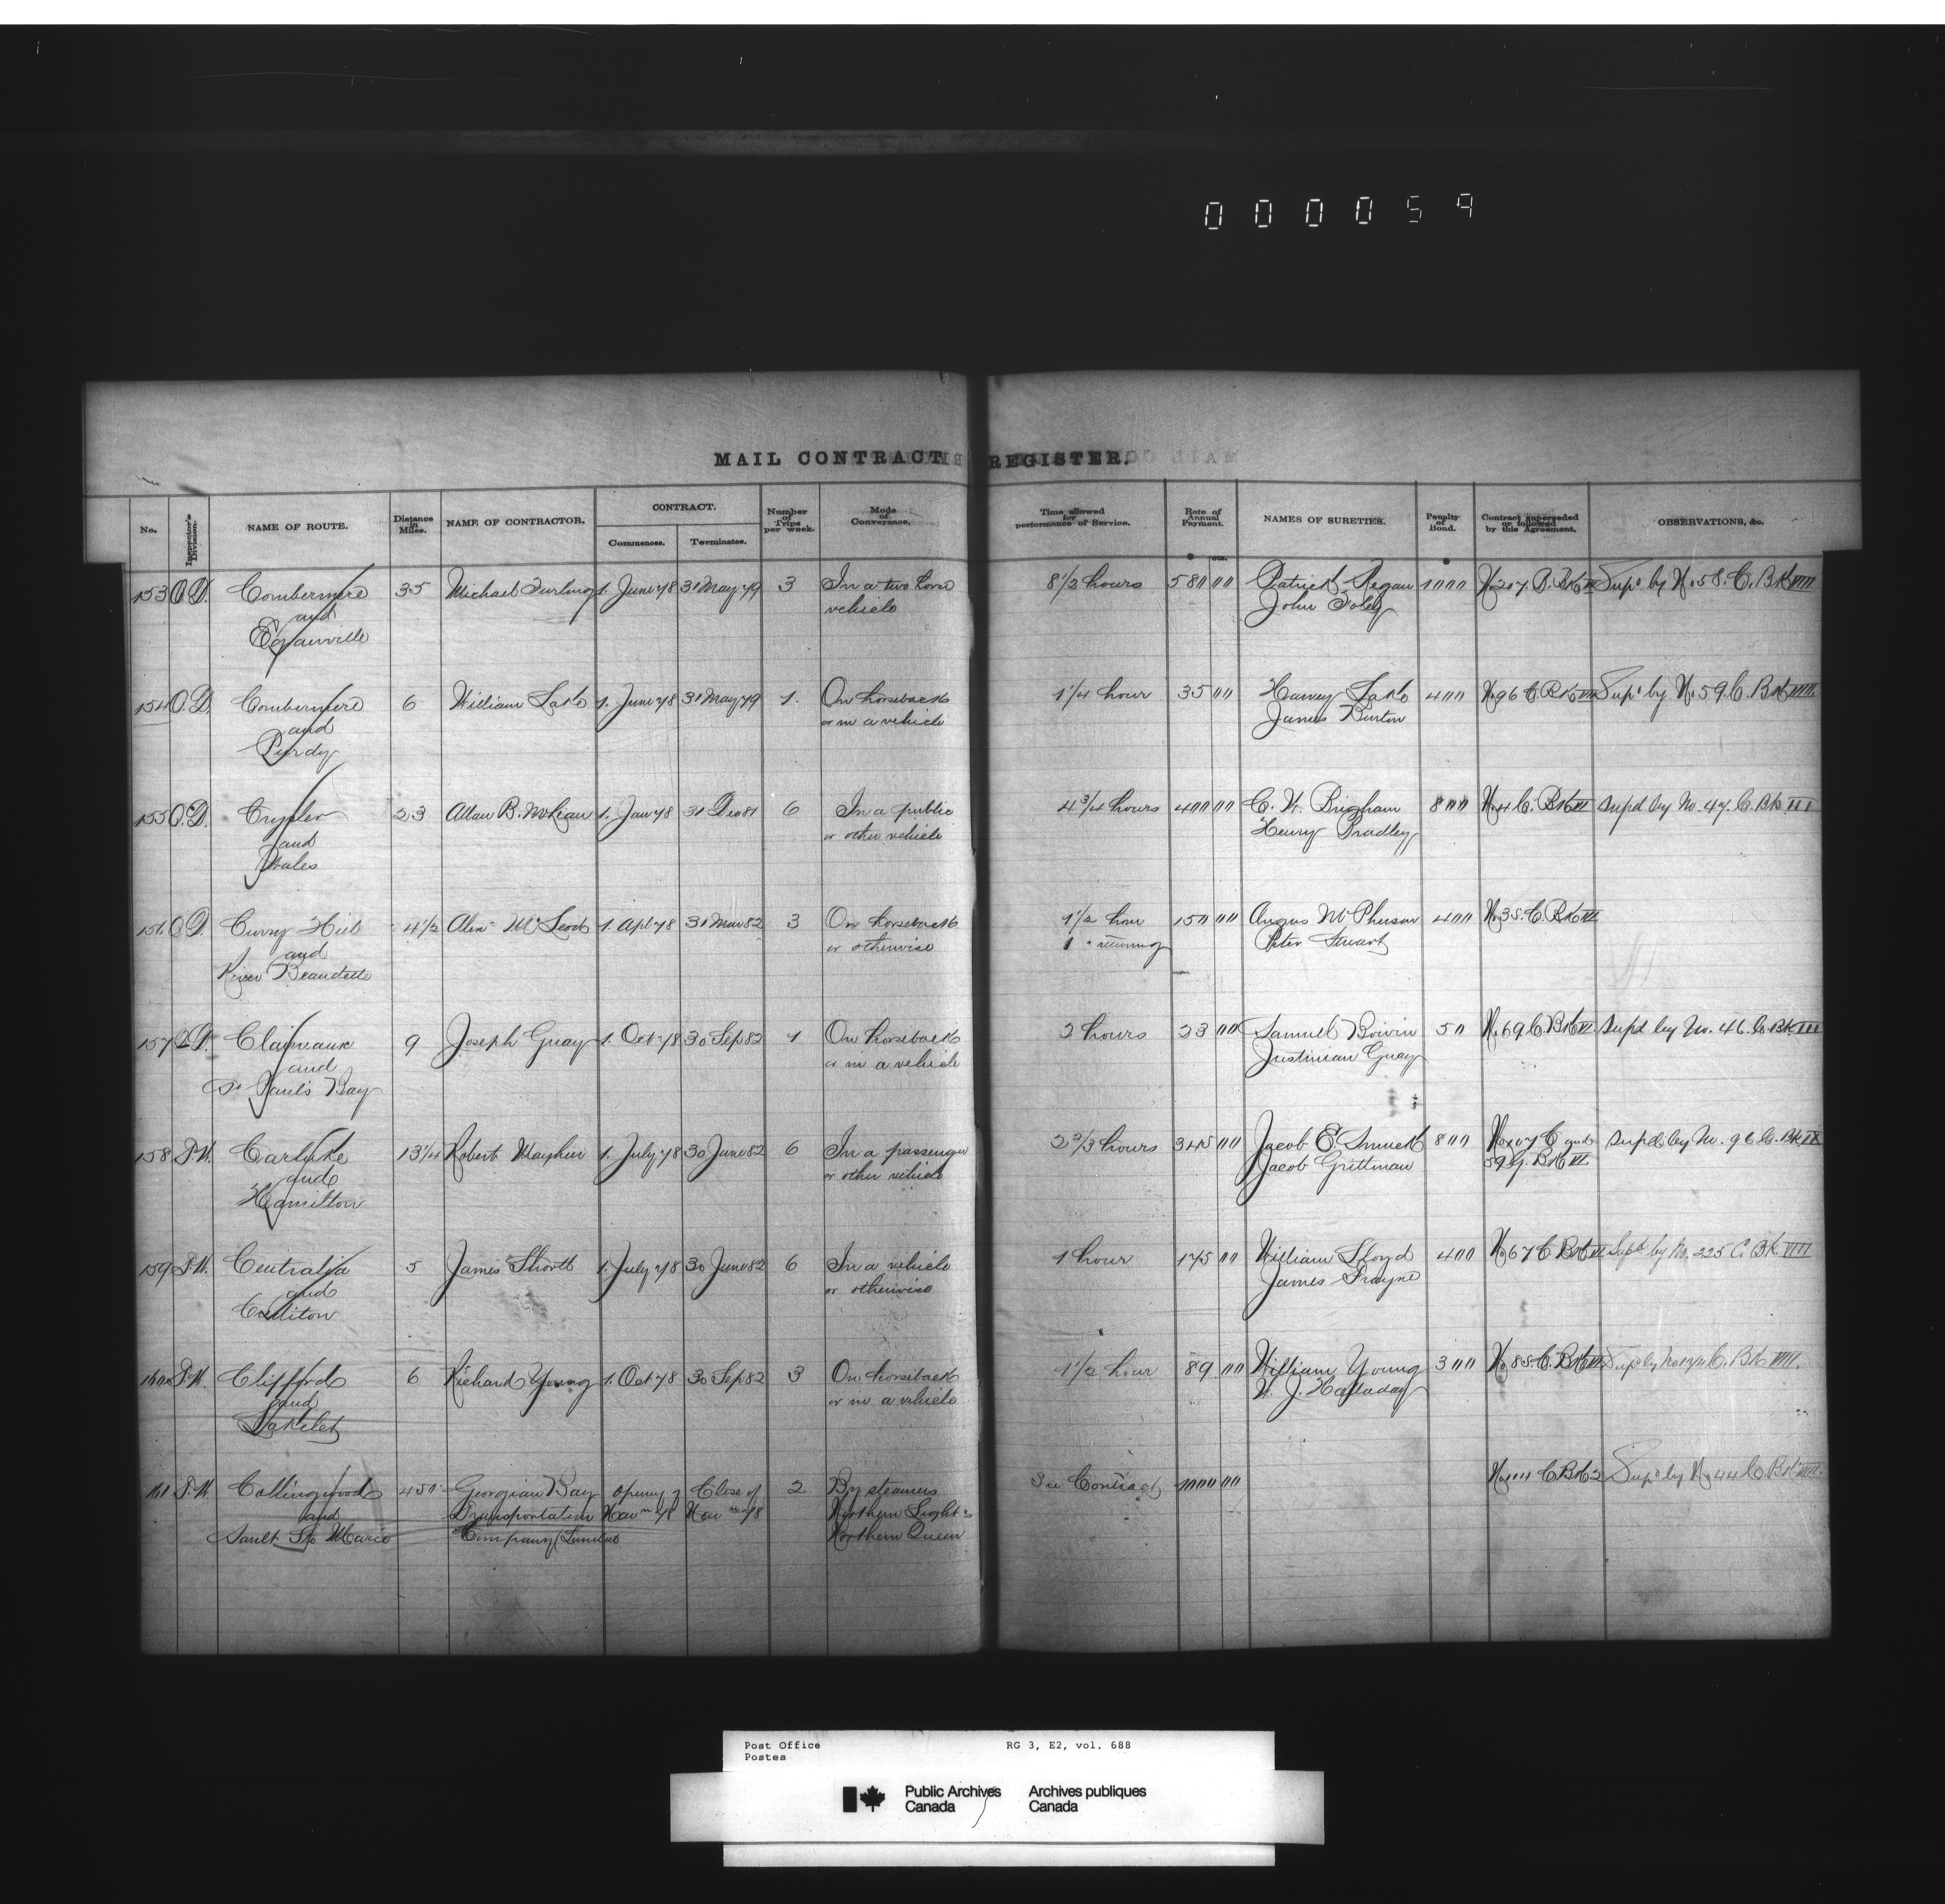 000059
MAIL CONTRACT REGISTER.
No. Inspector's Division. NAME OF ROUTE. Distance in Miles. NAME OF CONTRACTOR. CONTRACT. Commences. Terminates. Number of Trips per week. Mode of Conveyance. Time allowed for performance of Service. Rate of Annual Payment. NAMES OF SURETIES. Penalty of Bond. Contract superseded or followed by this Agreement. OBSERVATIONS, &c.
$ cts. $
153 O.D. Combermere 35 Michael 1. June 78 31 May 79 3 In a two horse 8 1/2 hours 580 00 Patrick Regan 1000 Supd by No 58. C. Bk IIII
and vehicle John Foley
Eganville
154 O.D. Combermere 6 William Lake 1. June 78 31 May 79 1. On horseback 1 1/4 hour 35 00 Harvey Lake 400 No 96 C. Bk Supd by No 59. C. Bk IIII
and or in a vehicle James Burton
Purdy
155 O.D. Crysler 23 Allan B. McLean 1. Jan 78 31 Dec 81 6 In a public 4 3/4 hours 400 00 C. W. Bingham 800 No 4 C. Bk VI Supd by No. 47. C. Bk III
and or other vehicle Henry Bradley
Wales
156 O.D. Curry Hill 4 1/2 Alex McLeod 1. Apl 78 31 Mar 82 3 On horseback 1 1/2 hour 150 00 Angus McPherson 400 No 38. C. Bk
and or otherwise 1 " returning Peter Stuart
River Beaudette
157 Q.D. Clairvaux 9 Joseph Guay 1. Oct 78 30 Sep 82 1 On horseback 2 hours 23 00 Samuel Boivin 50 No 69 C Bk VI Supd by No. 46 C. Bk III
and or in a vehicle Justinian Guay
St Paul's Bay
158 T.W. Carluke 13 1/4 Robert Mayhew 1. July 78 30 June 82 6 In a passenger 2 2/3 hours 345 00 Jacob E. Smuck 800 No 107 C and Supd by No. 96 C. Bk
and or other vehicle Jacob Grittman 59 G. Bk VI
Hamilton
159 T.W. Centralia 5 James Shortt 1. July 78 30 June 82 6 In a vehicle 1 hour 175 00 William Lloyd 400 No 67 C Bk Supd by No. 225 C. Bk IIII
and or otherwise James Frayne
Crediton
160 T.W. Clifford 6 Richard Young 1. Oct 78 30 Sep 82 3 On horseback 1 1/2 hour 89 00 William Young 300 No 88. C. Bk Supd by C. Bk IIII.
and or in a vehicle W. J. Halladay
Lakelet
161 T.W. Collingwood 450 Georgian Bay opening of Close of 2 By steamers See Contract 1000 00 No 114 C Bk 2 Supd by No 44 C. Bk IIII.
and Transportation Navn 78 Navn 78 Northern Light &
Sault Ste Marie Company (Limited Northern Queen
Post Office RG 3, E2, vol. 688
Postes
Public Archives Archives publiques
Canada Canada